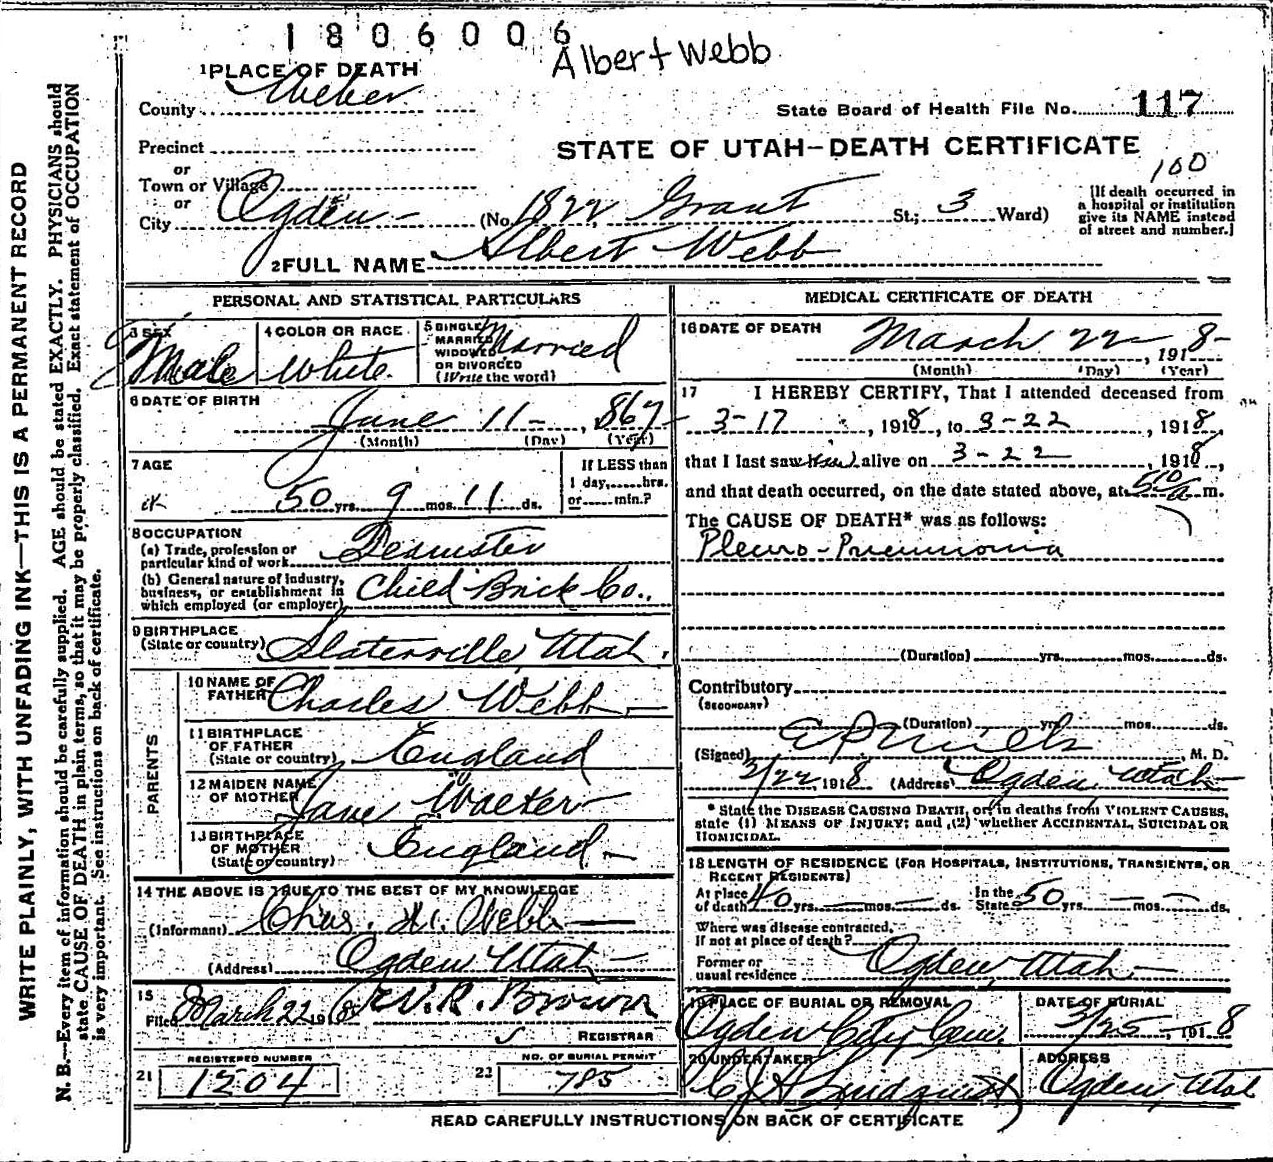 1806006
Albert Webb
1 PLACE OF DEATH
County Weber
State Board of Health File No. 117
Precinct
STATE OF UTAH—DEATH CERTIFICATE
or
Town or Village
or
100
City Ogden (No. 1822 Grant St.; 3 Ward)
[If death occurred in
a hospital or institution
give its NAME instead
of street and number.]
2 FULL NAME Albert Webb
WRITE PLAINLY, WITH UNFADING INK—THIS IS A PERMANENT RECORD
N. B.—Every item of information should be carefully supplied. AGE should be stated EXACTLY. PHYSICIANS should
state CAUSE OF DEATH in plain terms, so that it may be properly classified. Exact statement of OCCUPATION
is very important. See instructions on back of certificate.
PERSONAL AND STATISTICAL PARTICULARS
3 SEX
Male
4 COLOR OR RACE
White
5 SINGLE
MARRIED
WIDOWED
OR DIVORCED
(Write the word)
Married
6 DATE OF BIRTH
June 11 , 1867
(Month) (Day) (Year)
7 AGE
50 yrs. 9 mos. 11 ds.
If LESS than
1 day, hrs.
or min.?
8 OCCUPATION
(a) Trade, profession or
particular kind of work Teamster
(b) General nature of industry,
business, or establishment in
which employed (or employer) Child Brick Co.
9 BIRTHPLACE
(State or country) Slaterville Utah.
PARENTS
10 NAME OF
FATHER Charles Webb
11 BIRTHPLACE
OF FATHER
(State or country) England
12 MAIDEN NAME
OF MOTHER Jane Walker
13 BIRTHPLACE
OF MOTHER
(State or country) England
14 THE ABOVE IS TRUE TO THE BEST OF MY KNOWLEDGE
(Informant) Chas. Webb
(Address) Ogden Utah
15
Filed March 22 1918 W. R. Brown
REGISTRAR
21 REGISTERED NUMBER
1204
22 NO. OF BURIAL PERMIT
785
MEDICAL CERTIFICATE OF DEATH
16 DATE OF DEATH
March 22 , 1918
(Month) (Day) (Year)
17 I HEREBY CERTIFY, That I attended deceased from
3-17 , 1918, to 3-22 , 1918,
that I last saw him alive on 3-22 , 1918,
and that death occurred, on the date stated above, at 5 10 a m.
The CAUSE OF DEATH* was as follows:
Pleuro-Pneumonia
(Duration) yrs. mos. ds.
Contributory
(SECONDARY)
(Duration) yrs. mos. ds.
(Signed) E P Mills M. D.
3/22 1918 (Address) Ogden Utah
* State the DISEASE CAUSING DEATH, or, in deaths from VIOLENT CAUSES,
state (1) MEANS OF INJURY; and (2) whether ACCIDENTAL, SUICIDAL OR
HOMICIDAL.
18 LENGTH OF RESIDENCE (FOR HOSPITALS, INSTITUTIONS, TRANSIENTS, OR
RECENT RESIDENTS)
At place
of death 40 yrs. mos. ds.
In the
State 50 yrs. mos. ds.
Where was disease contracted,
if not at place of death?
Former or
usual residence Ogden, Utah
19 PLACE OF BURIAL OR REMOVAL
Ogden City Cem.
DATE OF BURIAL
3/25 1918
20 UNDERTAKER
Lindquist
ADDRESS
Ogden, Utah
READ CAREFULLY INSTRUCTIONS ON BACK OF CERTIFICATE